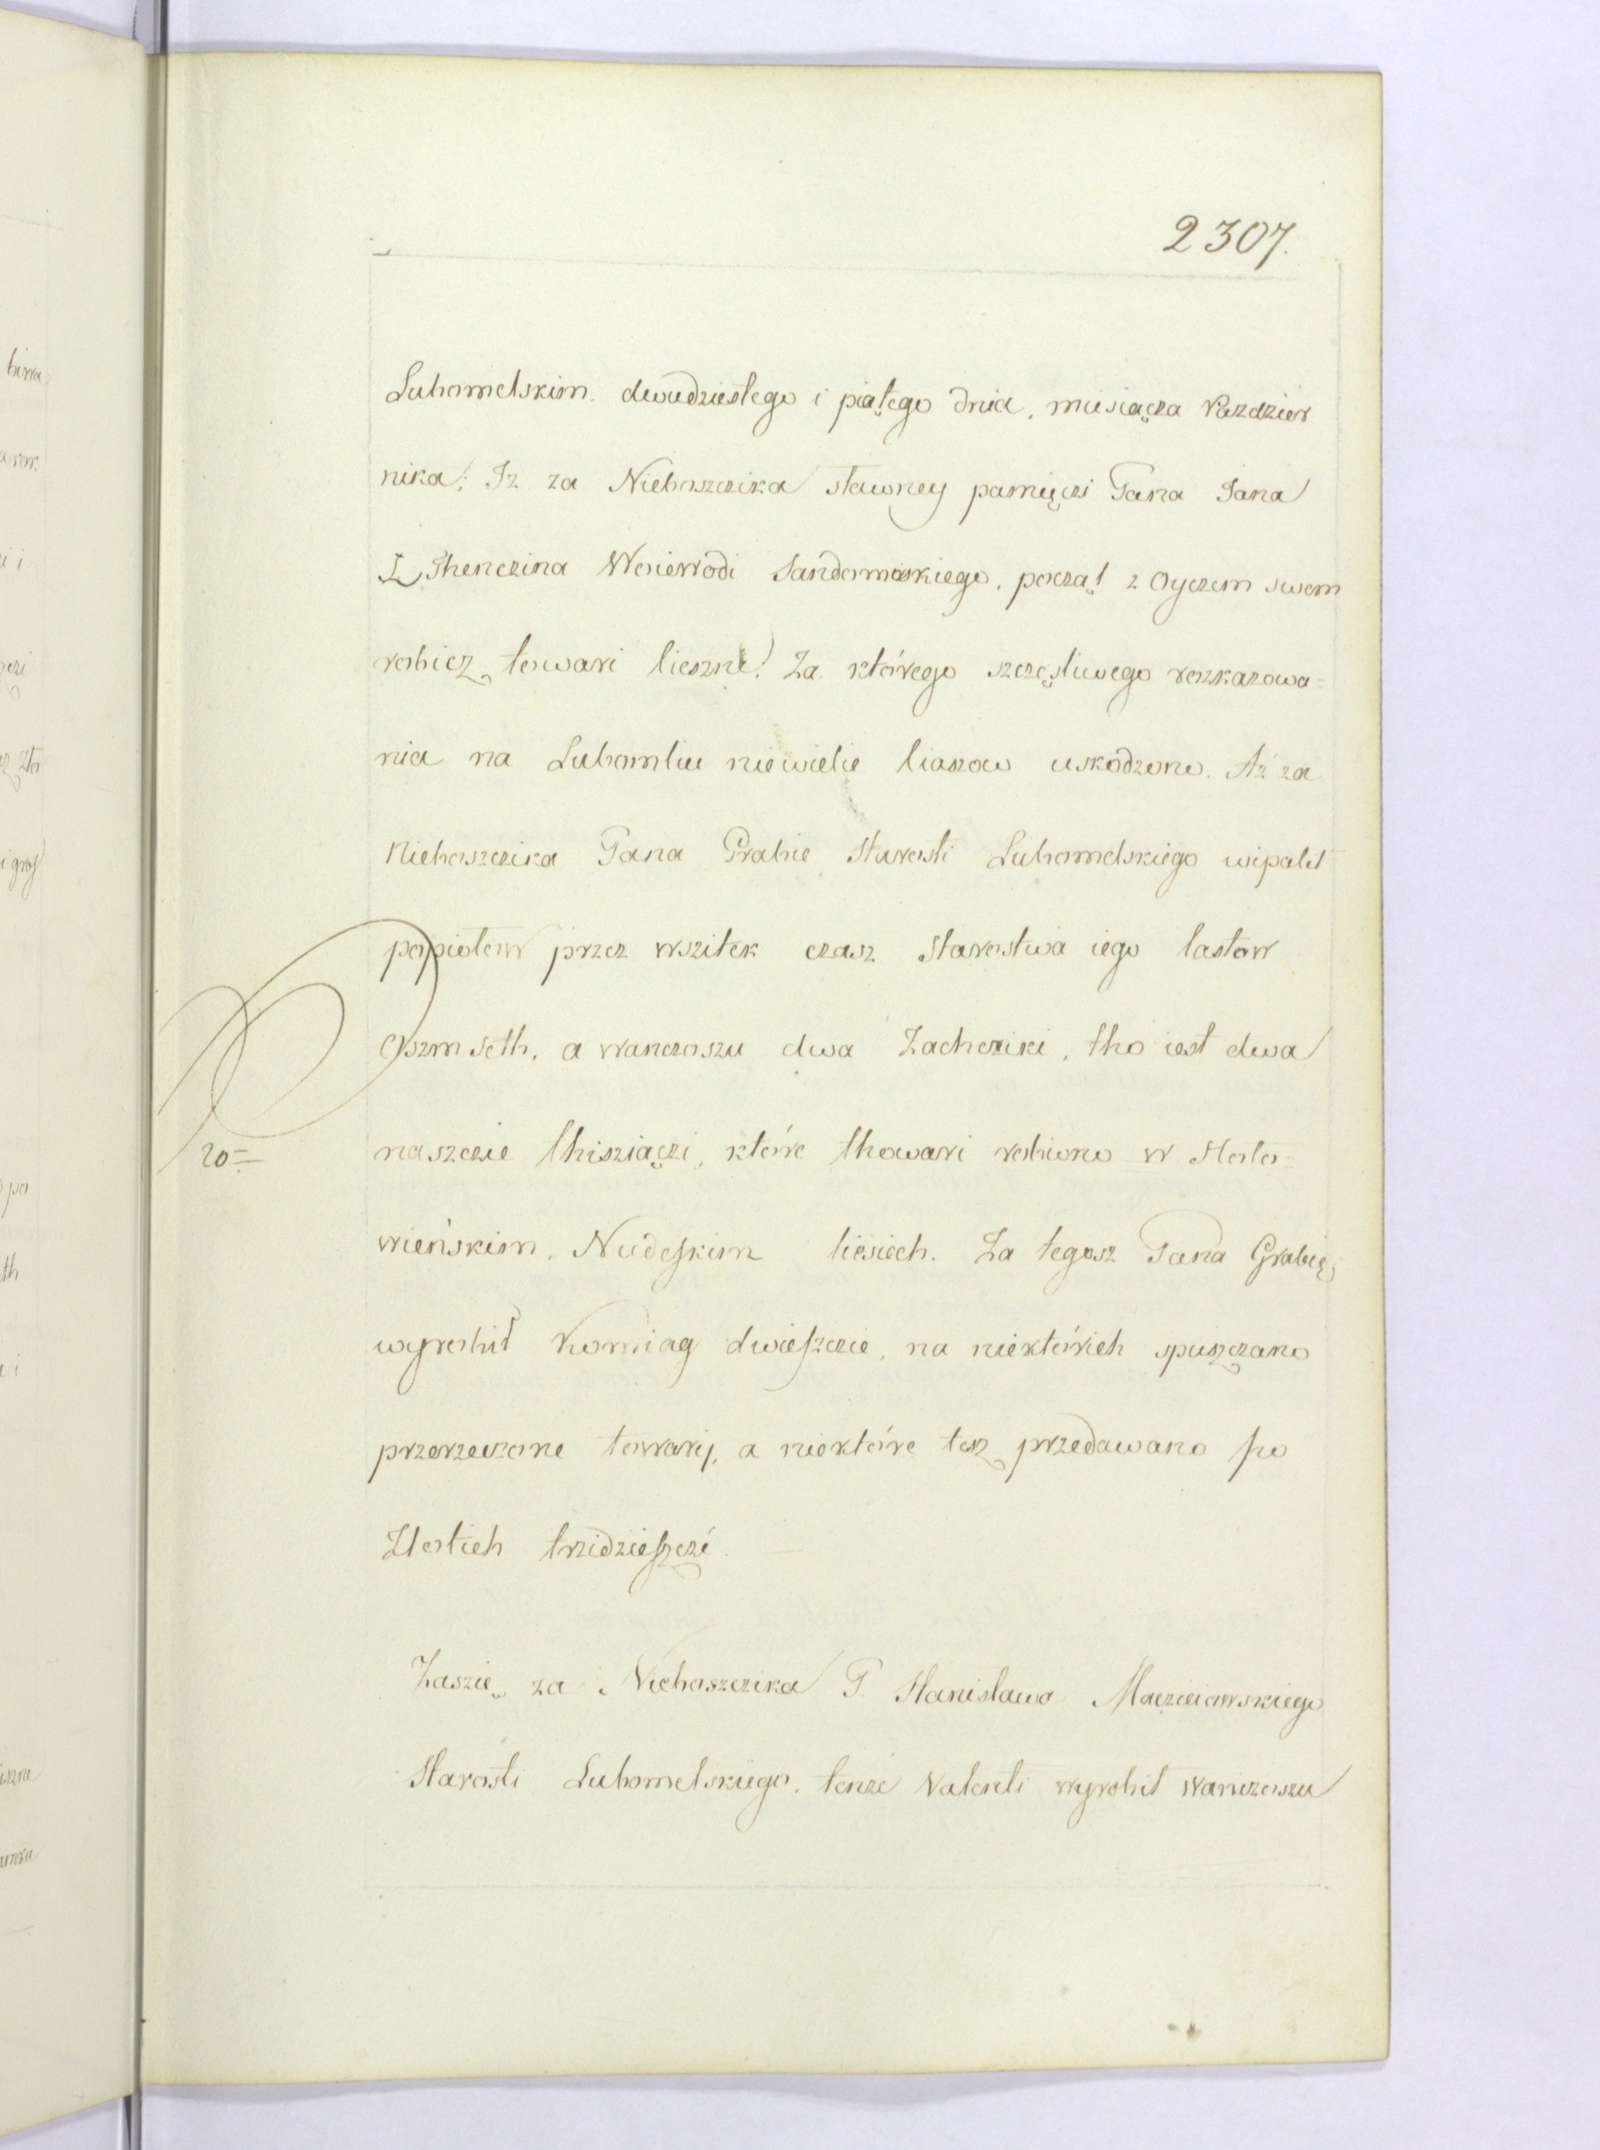 2307.
Luhomelskim. dwudziestego i piątego dnia, miesiącza Pazdzier
nika; Iż za Nieboszczika sławney pamięczi Pana Jana
Z Thenczina Woiewodi Sandomirskiego, począł z Oyczem swem
robicz towari lieszne! Za którego szczęśliwego rozkazowa=
nia na Luhomliu niewielie liaszow uskodzono. Aż za
Nieboszczika Pana Grabie Starosti Luhomelskiego wipalił
popiołow przez wszitek czasz Starostwa iego łasztow
Oszmseth, a wanczoszu dwa Zachcziki, tho iest dwa
naszczie thisziączi, które thowari robiono w Hoło=
wieńskim, Nudeskim liesiech. Za tegosz Pana Grabię
wyrobił Komiag dwieszczie, na niektórich spuszczano
przerzeczone towary, a niektóre tesz przedawano po
Złotich trzidzieszczi.
Zaszię za Nieboszczika P. Stanisława Maczieiowskiego
Starosti Luhomelskiego, tenże Valenti wyrobił wanczoszu
20=